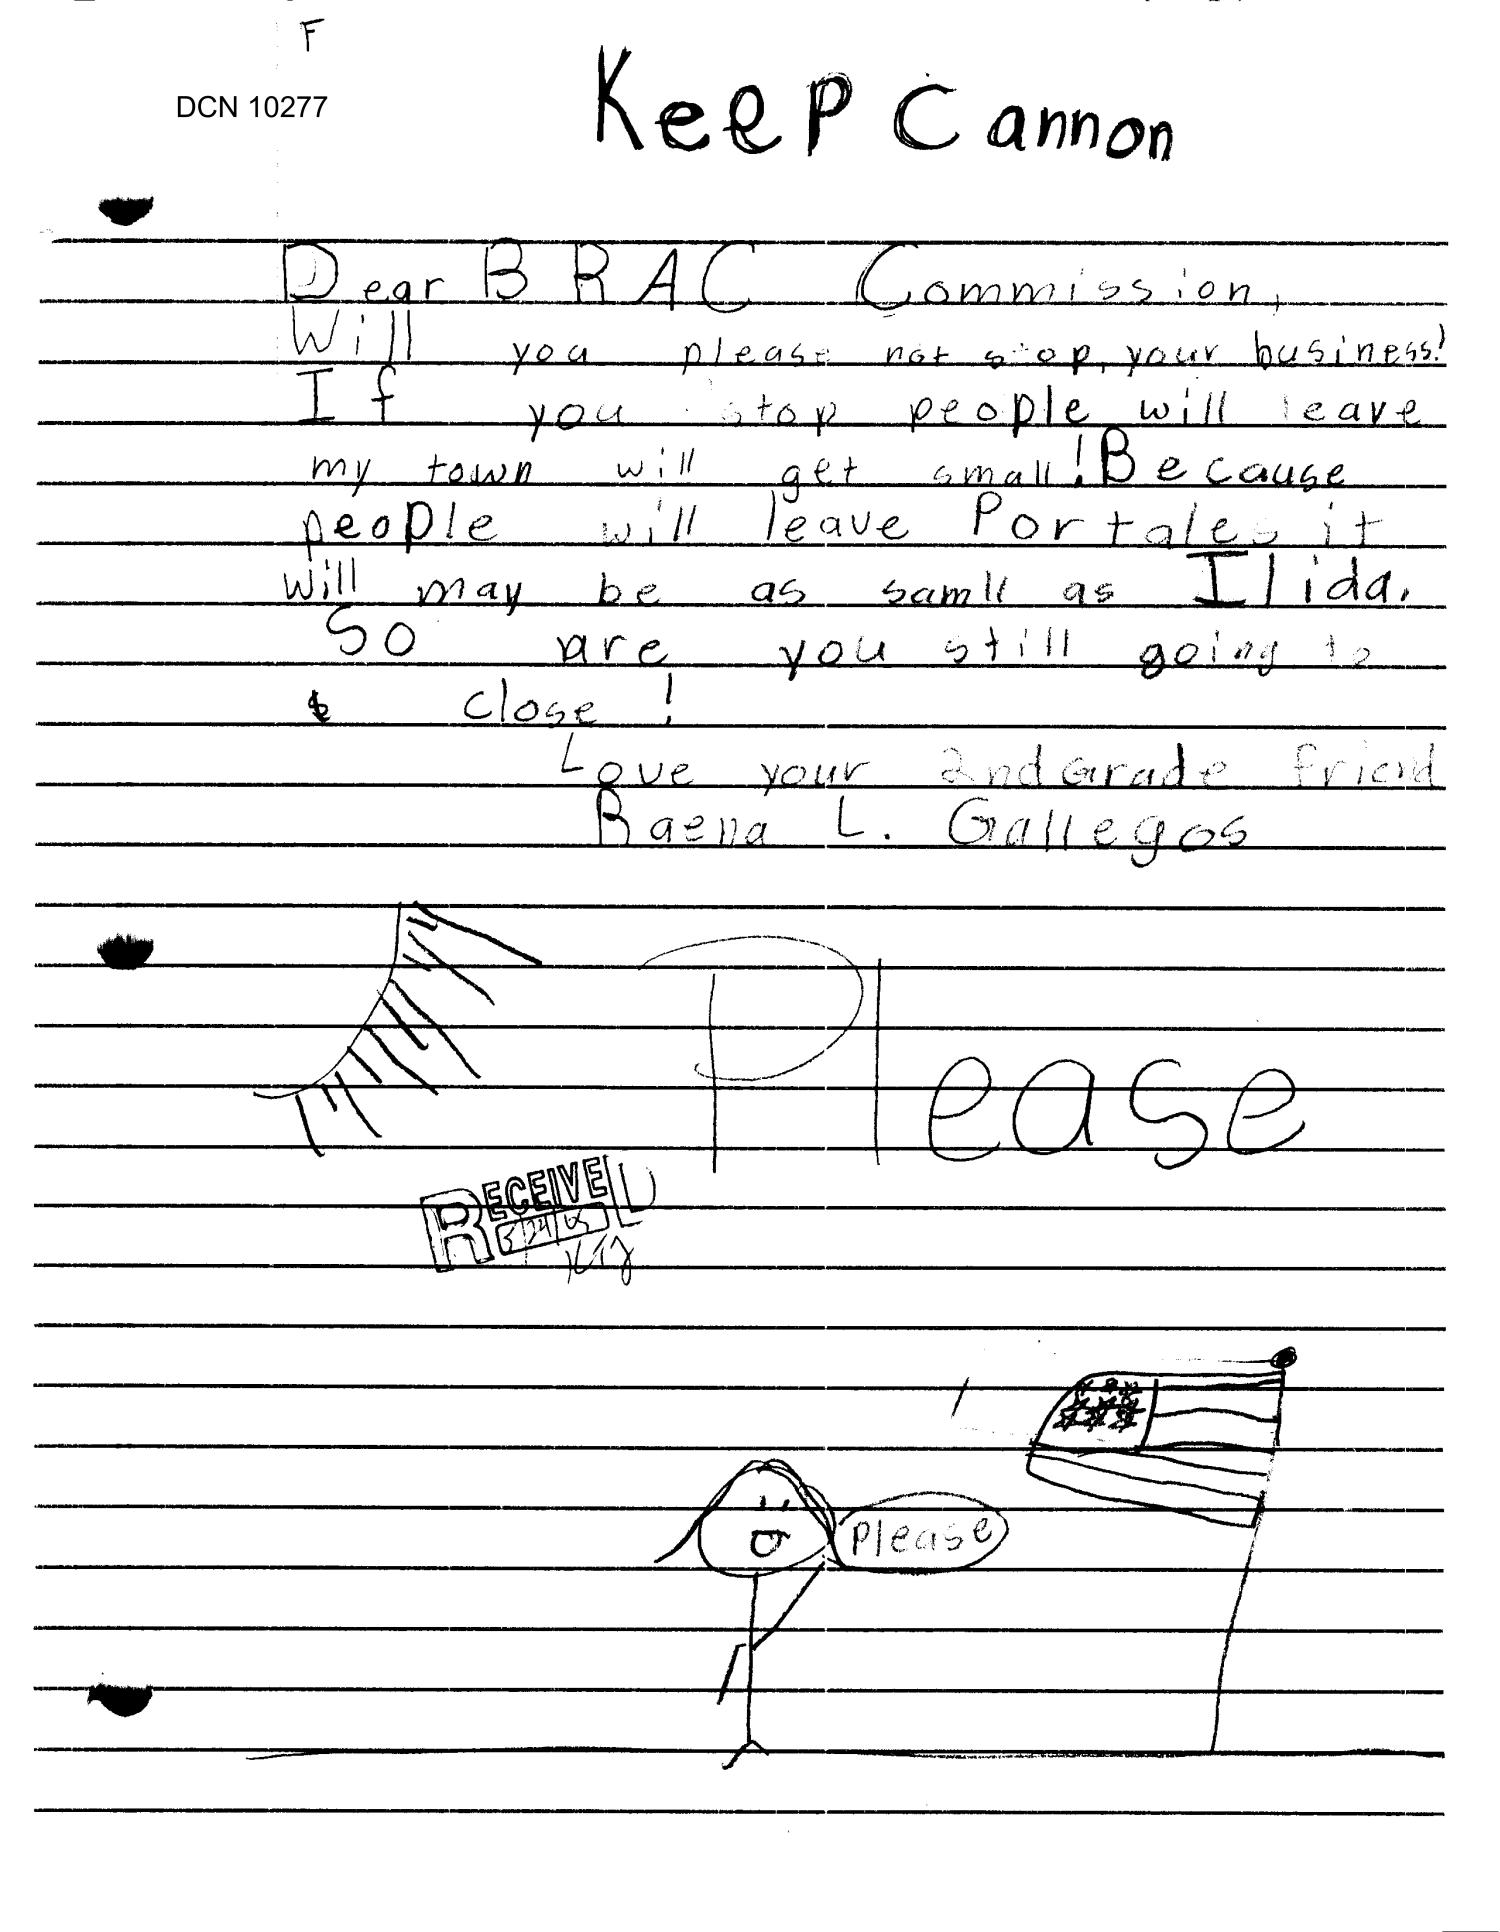 F
DCN 10277
Keep Cannon
Dear BRAC Commission,
Will you please not stop, your business!
If you stop people will leave
my town will get small! Because
people will leave Portales it
will may be as samll as Ilida.
So are you still going to
close!
Love your 2nd Grade friend
Raena L. Gallegos
Please
RECEIVED
Please